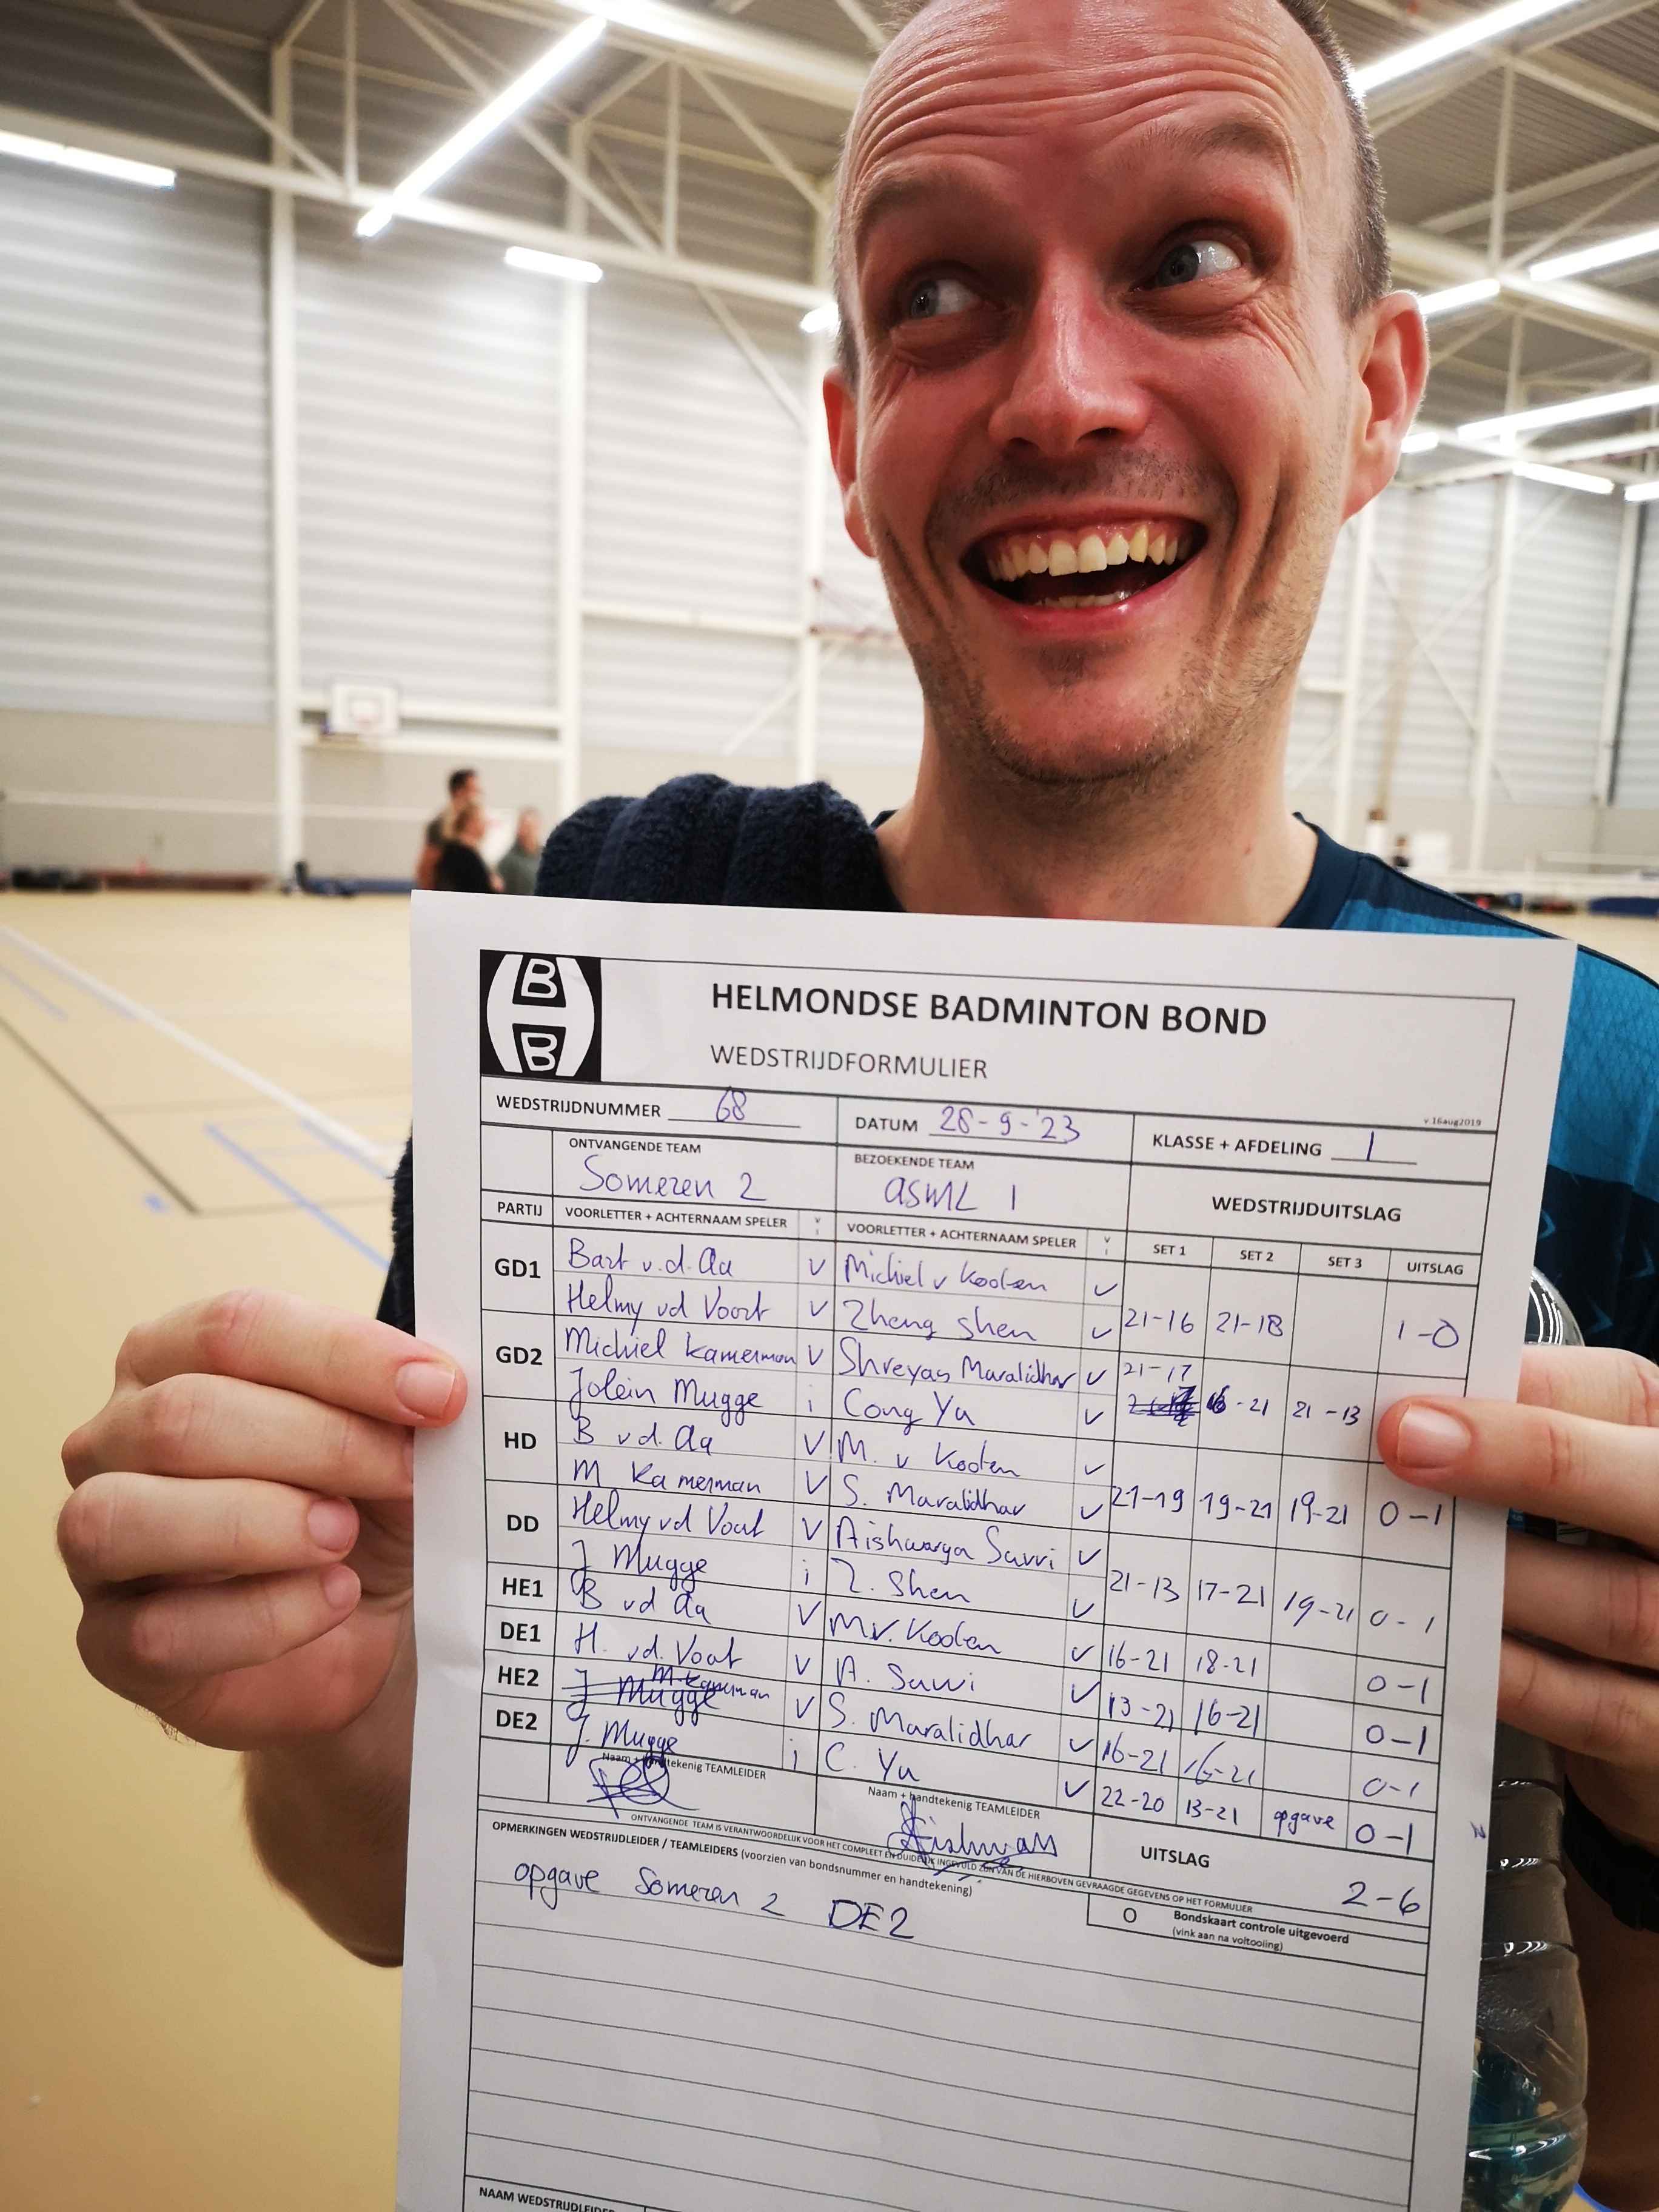 B
B
HELMONDSE BADMINTON BOND
WEDSTRIJDFORMULIER
v.16aug2019
WEDSTRIJDNUMMER 68 DATUM 28-9-'23 KLASSE + AFDELING 1
ONTVANGENDE TEAM BEZOEKENDE TEAM WEDSTRIJDUITSLAG
Someren 2 asml 1
PARTIJ VOORLETTER + ACHTERNAAM SPELER v i VOORLETTER + ACHTERNAAM SPELER v i SET 1 SET 2 SET 3 UITSLAG
GD1 Bart v.d. Aa v Michiel v Kooten v
Helmy vd Voort v Zheng Shen v 21-16 21-18 1-0
GD2 Michiel Kamerman v Shreyas Maralidhar v 21-17
Jolein Mugge i Cong Yu v 16-21 21-13
HD B v.d. Aa v M. v Kooten v
M Kamerman v S. Maralidhar v 21-19 19-21 19-21 0-1
DD Helmy vd Voort v Aishwarya Savvi v
J Mugge i Z. Shen v 21-13 17-21 19-21 0-1
HE1 B vd Aa v M v. Kooten v 16-21 18-21 0-1
DE1 H. vd. Voort v A. Savvi v 13-21 16-21 0-1
HE2 J Mugge M. Kamerman v S. Maralidhar v 16-21 16-21 0-1
DE2 J. Mugge i C. Yu v 22-20 13-21 opgave 0-1
Naam + handtekenig TEAMLEIDER Naam + handtekenig TEAMLEIDER UITSLAG 2-6
ONTVANGENDE TEAM IS VERANTWOORDELIJK VOOR HET COMPLEET EN DUIDELIJK INGEVULD ZIJN VAN DE HIERBOVEN GEVRAAGDE GEGEVENS OP HET FORMULIER
OPMERKINGEN WEDSTRIJDLEIDER / TEAMLEIDERS (voorzien van bondsnummer en handtekening)
O Bondskaart controle uitgevoerd
(vink aan na voltooiing)
opgave Someren 2 DE2
NAAM WEDSTRIJDLEIDER